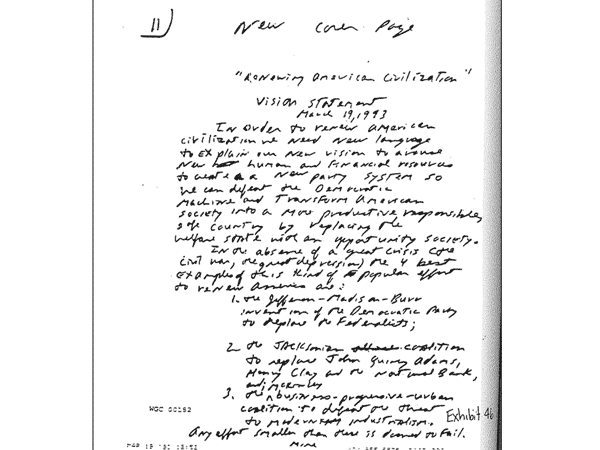 11
New Cover Page
"Renewing American Civilization"
Vision Statement
March 19, 1993
In order to renew American
civilization we need new language
to explain our new vision to arouse
new human and financial resources
to create a new party system so
we can defeat the Democratic
Machine and transform American
society into a more productive responsible,
safe country by replacing the
welfare state with an opportunity society.
In the absence of a great crisis (the
civil war, the great depression) the 4 best
examples of this kind of popular effort
to renew America are:
1. the Jefferson-Madison-Burr
invention of the Democratic Party
to replace the Federalists;
2. the Jacksonian coalition
to replace John Quincy Adams,
Henry Clay and the National Bank,
3. the business-progressive-urban
coalition to defeat the threat
to modern industrialism.
Any effort smaller than these is doomed to fail.
WGC 00152
Exhibit 46